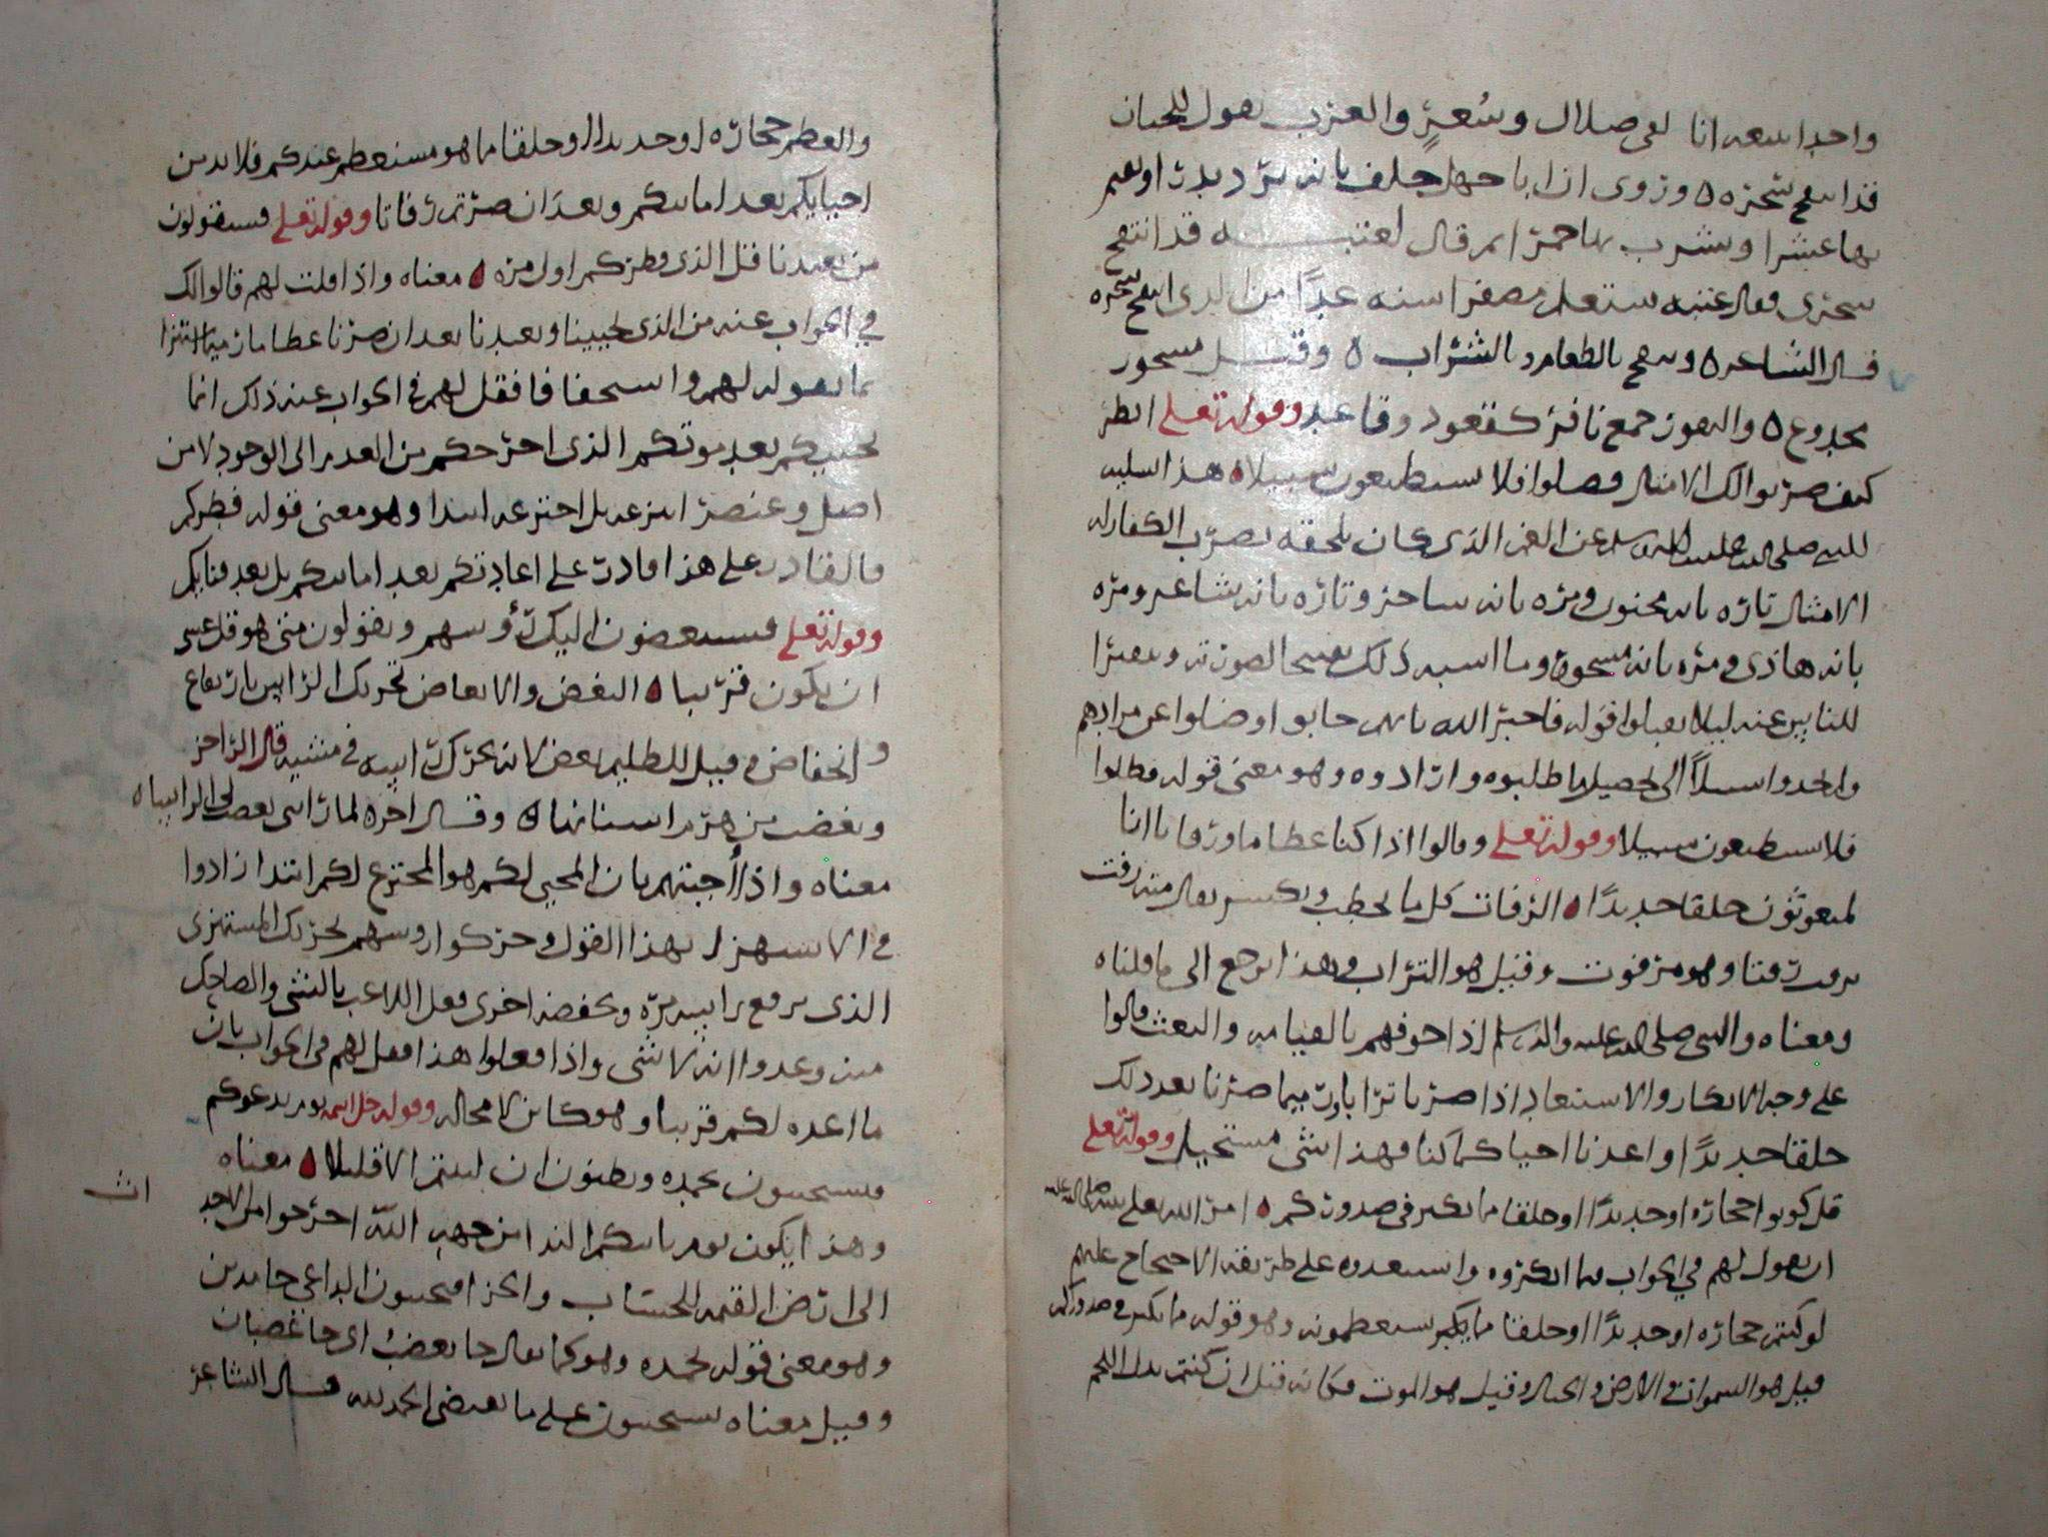 واحدا نتبعه انا لفي ضلال وسعر والعرب تقول للجبان
قد انتفخ سحره ٥ وروى ان ابا جهل حلف بانه يرد بدرا ويقيم
بها عشرا ويشرب بها خمرا ثم قال لعتبه قد انتفخ
سحرى فقال عتبه ستعلم مصفر استه غدًا من الذى انتفخ سحره
قال الشاعر ٥ ونسحر بالطعام وبالشراب ٥ وقيل مسحور
مخدوع ٥ والنفور جمع نافر كقعود وقاعد وقوله تعلى انظر
كيف ضربوا لك الامثال فضلوا فلا يستطيعون سبيلا ٥ هذا تسليه
للنبى صلى الله عليه واله وسلم عن الغم الذى كان يلحقه بضرب الكفار له
الامثال تاره بانه مجنون ومره بانه ساحر وتاره بانه شاعر ومره
بانه هاذى ومره بانه مسحور وما اشبه ذلك تقبيحا لصورته وتنفيرا
للناس عنه ليلا يقبلوا قوله فاخبر الله بانهم خابوا وضلوا عن مرادهم
ولم يجدوا سبيلاً الى تحصيل ما طلبوه وارادوه وهو معنى قوله فضلوا
فلا يستطيعون سبيلا وقوله تعلى وقالوا اذا كنا عظاما ورفاتا انا
لمبعوثون خلقا جديدًا ٥ الرفات كل ما تحطم وتكسر يقال منه رفت
يرفت رفتا وهو مرفوت وقيل هو التراب وهذا يرجع الى ما قلناه
ومعناه والنبى صلى الله عليه واله وسلم اذا خوفهم بالقيامه والبعث قالوا
على وجه الانكار والاستبعاد اذا صرنا ترابا ورميما صرنا بعد ذلك
خلقا جديدًا واعدنا احيا كما كنا فهذا شى مستحيل وقوله تعلى
قل كونوا حجاره او حديدًا او خلقا مما يكبر فى صدوركم ٥ امر الله تعلى نبيه صلى الله عليه
ان يقول لهم في الجواب مما انكروه واستبعدوه على طريقه الاحتجاج عليهم
لو كنتم حجاره او حديدًا او خلقا مما يكبر تستعظمونه وهو قوله مما يكبر فى صدوركم
فقيل هو السموات والارض والجبال وقيل هو الموت فكانه قيل ان كنتم بدل اللحم
والعظم حجاره او حديدا او خلقا مما هو مستعظم عندكم فلا بد من
احيايكم بعد اماتتكم وبعد ان صرتم رفاتا وقوله تعلى فسيقولون
من يعيدنا قل الذى فطركم اول مره ٥ معناه واذا قلت لهم قالوا لك
في الجواب عنه من الذى يحيينا ويعيدنا بعد ان صرنا عظاما رميما استهزا
بما تقوله لهم واستخفافا فقل لهم فى الجواب عند ذلك انما
يحييكم بعد موتكم الذى اخرجكم من العدم الى الوجود لا من
اصل وعنصر انتزعه بل اخترعه ابتدا وهو معنى قوله فطركم
فالقادر على هذا قادر على اعادتكم بعد اماتتكم بل بعد فنايكم
وقوله تعلى فسينغضون اليك رؤوسهم ويقولون متى هو قل عسى
ان يكون قريبا ٥ النغض والانغاض تحريك الراس بارتفاع
وانخفاض وقيل للظليم نغض لانه يحرك راسه في مشيه قال الراجز
ونغضت من هرم اسنانها ٥ وقال اخر ٥ لما راتنى نغضت لى الراسا ٥
معناه واذا أجبتهم بان المحيى لكم هو المخترع لكم ابتدا زادوا
فى الاستهزا بهذا القول وحركوا روسهم تحريك المستهزى
الذى يرفع راسه مره ويخفضه اخرى فعل اللاعب بالشى والضاحك
منه وعدوا انه لا شى واذا فعلوا هذا فقل لهم فى الجواب بان
ما اعده لكم قريبا وهو كاين لا محاله وقوله جل اسمه يوم يدعوكم
فتستجيبون بحمده وتظنون ان لبثتم الا قليلا ٥ معناه
وهذا يكون يوم ياتيكم الندا من جهه الله اخرجوا من الاجد
اث
الى ارض القيمه للحساب والجزا فتجيبون الداعى حامدين
وهو معنى قوله بحمده وهو كما يقال جا بغضب اى جا غضبان
وقيل معناه تستجيبون على ما يقتضى الحمد لله قال الشاعر